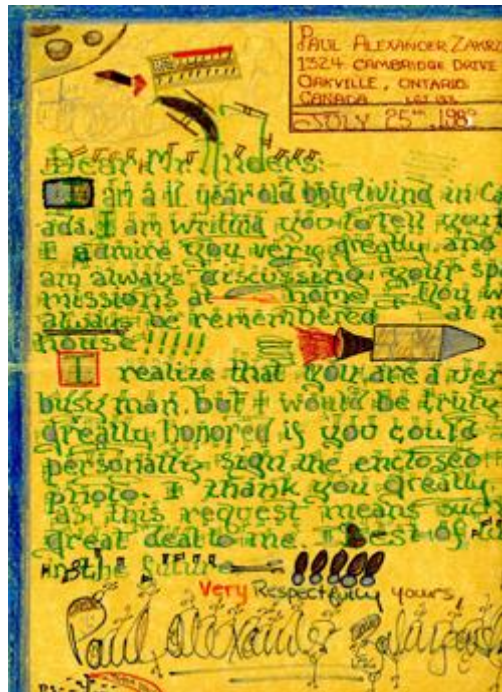 PAUL ALEXANDER
1324 CAMBRIDGE DRIVE
OAKVILLE, ONTARIO
CANADA
JULY 25TH, 198
Dear Mr. Anders:
I am a 11 year old boy living in
ada. I am writing you to tell you
I admire you very greatly, and
am always discussing your
missions at home. You
always be remembered at
house!
I realize that you are a
busy man, but I would be truly
greatly honored if you could
personally sign the enclosed
photo. I thank you greatly
as this request means
great deal to me. Best of
in the future
Very Respectfully yours,
Paul Alexander